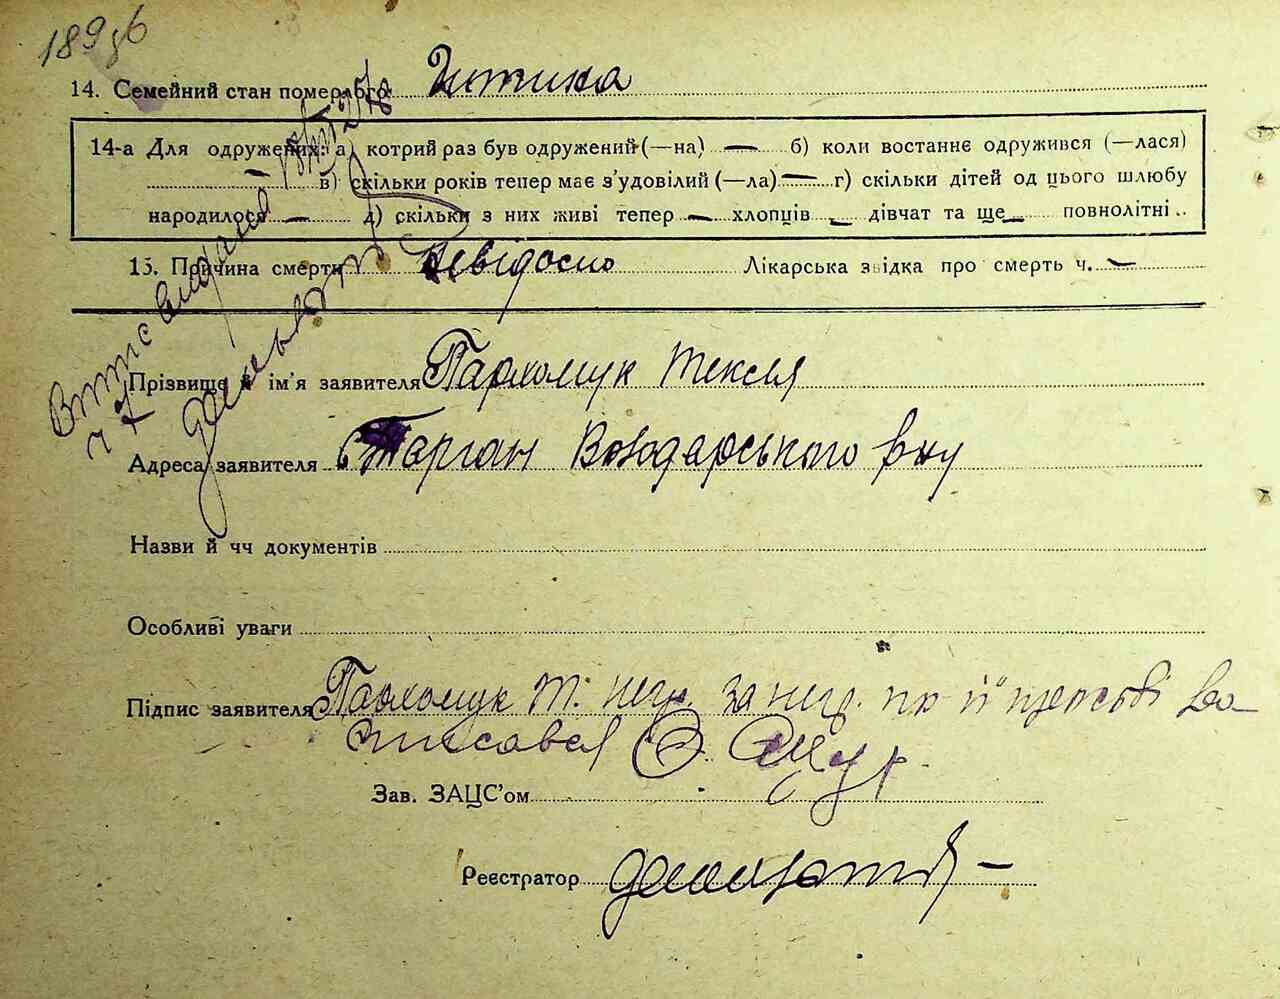 189
14. Семейний стан померлого Дитина
14-а Для одружених: а) котрий раз був одружений (—на) — б) коли востаннє одружився (—лася)
— в) скільки років тепер має з'удовілий (—ла) — г) скільки дітей од цього шлюбу
народилося — д) скільки з них живі тепер — хлопців — дівчат та ще — повнолітні ..
15. Причина смерти Невідомо Лікарська звідка про смерть ч. —
Прізвище й ім'я заявителя Пархомук Текля
Адреса заявителя с Тарган Володарського р-ну
Назви й чч документів
Особливі уваги
Підпис заявителя Пархомук Т. негр. за негр. по її
росписався
Зав. ЗАЦС'ом
Реєстратор
Випис видана